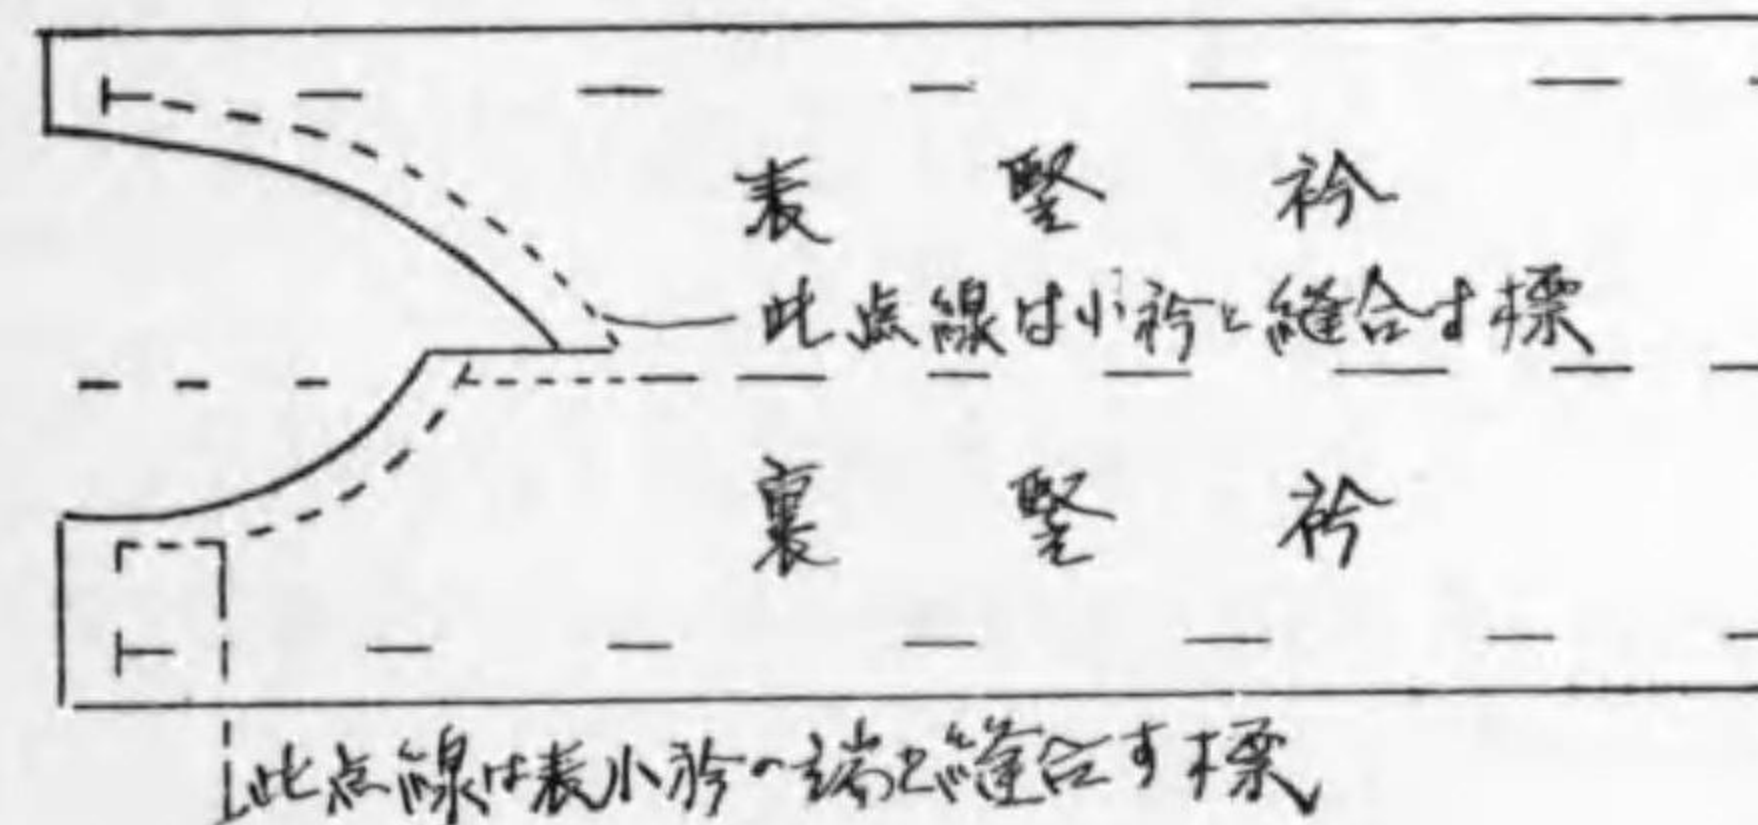 表竪衿
此点線は小衿と縫合す標
裏竪衿
此点線は表小衿の端と縫合す標